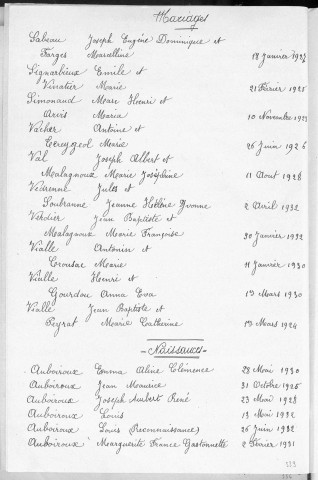 Mariages
Sabeau Joseph Eugène Dominique et
Farges Marcelline 18 Janvier 1927
Signarbieux Emile et
Vinatier Marie 21 Février 1925
Simonaud Marc Henri et
Arvis Maria 10 Novembre 1923
Vacher Antoine et
Terreygeol Marie 26 Juin 1926
Val Joseph Albert et
Malagnoux Marie Joséphine 11 Aout 1928
Vedrenne Jules et
Soubranne Jeanne Hélène Yvonne 2 Avril 1932
Verdier Jean Baptiste et
Malagnoux Marie Françoise 30 Janvier 1932
Vialle Antonin et
Crousac Marie 11 Janvier 1930
Vialle Henri et
Gourdou Anna Eva 15 Mars 1930
Vialle Jean Baptiste et
Peyrat Marie Catherine 15 Mars 1924
- Naissances -
Auboiroux Emma Aline Clémence 28 Mai 1930
Auboiroux Jean Maurice 31 Octobre 1925
Auboiroux Joseph Aubert René 23 Mai 1928
Auboiroux Louis 13 Mai 1932
Auboiroux Louis (Reconnaissance) 26 Juin 1932
Auboiroux Marguerite France Gastonnette 2 Février 1931